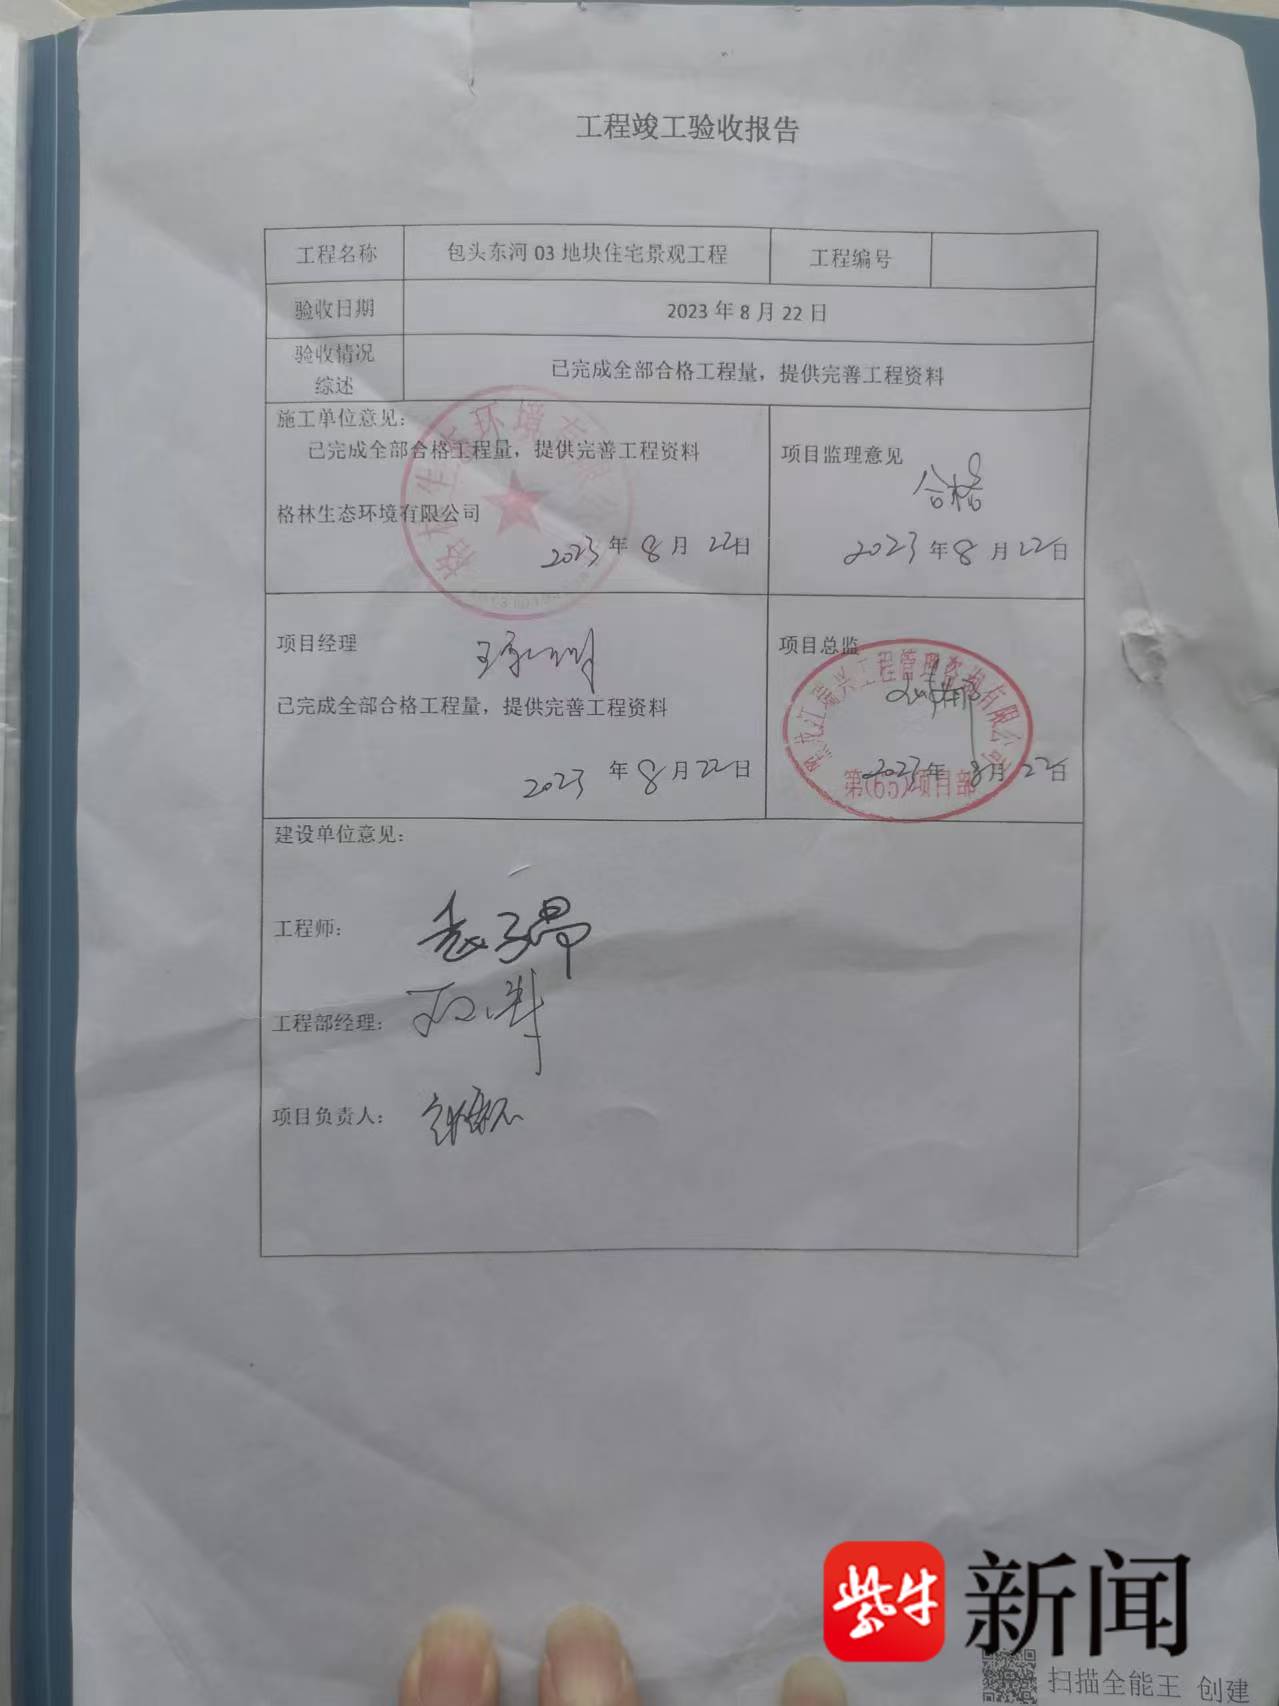 工程竣工验收报告
工程名称 包头东河 03 地块住宅景观工程 工程编号
验收日期 2023 年 8 月 22 日
验收情况
综述
已完成全部合格工程量，提供完善工程资料
施工单位意见：
已完成全部合格工程量，提供完善工程资料
格林生态环境有限公司
2023 年 8 月 22日
格林生态环境有限公
项目监理意见
合格
2023 年 8 月 22日
项目经理
已完成全部合格工程量，提供完善工程资料
2023 年 8 月 22日
项目总监
黑龙江瑞兴工程管理咨询有限公司
2023年 8月 22日
项目部
建设单位意见：
工程师：
工程部经理：
项目负责人：
紫牛新闻
扫描全能王 创建